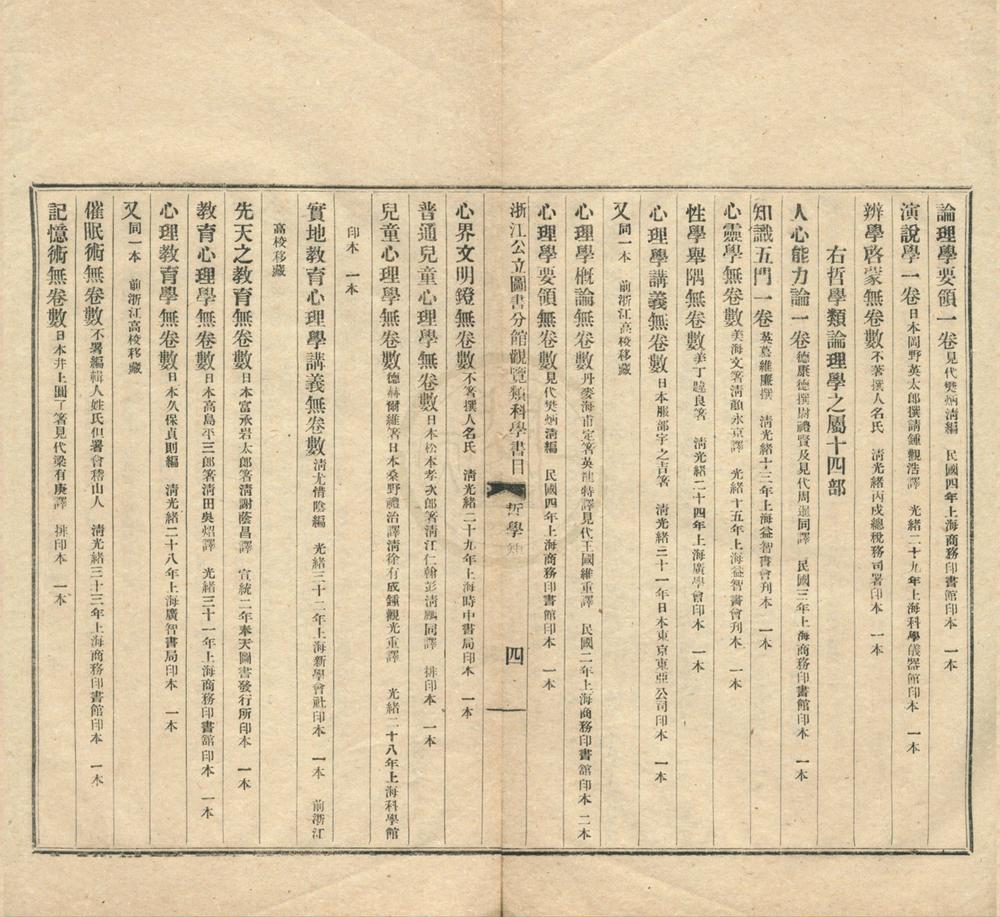 論理學要領一卷見代樊炳淸編　民國四年上海商務印書館印本　一本
演說學一卷日本岡野英太郎撰請鍾觀浩譯　光緖二十九年上海科學儀器館印本　一本
辨學啓蒙無卷數不著撰人名氏　淸光緖丙戍總稅務司署印本　一本
右哲學類論理學之屬十四部
人心能力論一卷德康德撰尉禮賢及見代周暹同譯　民國三年上海商務印書館印本　一本
知識五門一卷英慕維廉撰　淸光緖十三年上海益智書會刊本　一本
心靈學無卷數美海文箸淸顏永京譯　光緖十五年上海益智書會刋本　一本
性學舉隅無卷數美丁韙良箸　淸光緖二十四年上海廣學會印本　一本
心理學講義無卷數日本服部宇之吉箸　淸光緖三十一年日本東京東亞公司印本　一本
又同一本　前浙江高校移藏
心理學槪論無卷數丹麥海甫定箸英　特譯見代王國維重譯　民國二年上海商務印書舘印本　二本
心理學要領無卷數見代樊炳淸編　民國四年上海商務印書館印本　一本
浙江公立圖書分館觀覽類科學書目　哲學　四
心界文明鐙無卷數不箸撰人名氏　淸光緖二十九年上海時中書局印本　一本
普通兒童心理學無卷數日本松本孝次郎箸淸江仁翰彭淸鵬同譯　排印本　一本
兒童心理學無卷數德赫爾維箸日本桑野禮治譯淸徐有成鍾觀光重譯　光緖二十八年上海科學館
印本　一本
實地教育心理學講義無卷數淸尤惜陰編　光緖三十二年上海新學會社印本　一本　前浙江
高校移藏
先天之敎育無卷數日本富永岩太郎箸淸謝蔭昌譯　宣統二年奉天圖書發行所印本　一本
敎育心理學無卷數日本高島平三郎箸淸田吳炤譯　光緖三十一年上海商務印書舘印本　一本
心理敎育學無卷數日本久保貞則編　淸光緖二十八年上海廣智書局印本　一本
又同一本　前浙江高校移藏
催眠術無卷數不署編輯人姓氏但署會稽山人　淸光緖三十三年上海商務印書館印本　一本
記憶術無卷數日本井上圓了箸見代梁有庚譯　排印本　一本